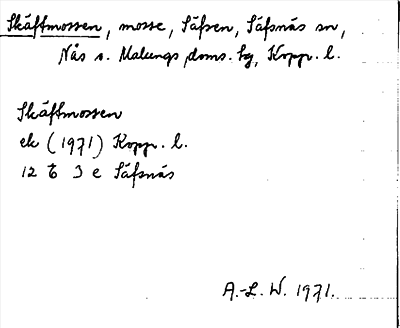 Skäftmossen, mosse, Säfsen, Säfsnäs sn,
Nås o. Malungs doms. hg, Kopp. l.
Skäftmossen
ek (1971) Kopp. l.
12 E 3 e Säfsnäs
A.-L. W. 1971.